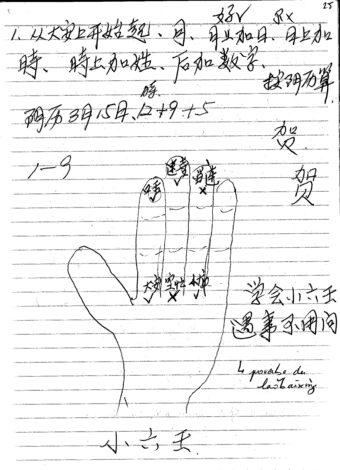 25
好√ 坏×
1. 从大安上开始起、月、月上加日、日上加
時、時上加姓、后加数字、
按阴历算
阴历3月15日、12+9+5
贺
贺
1—9
速喜
大安 空亡
学会小六壬
遇事不用问
↳ proverbe du
小六壬